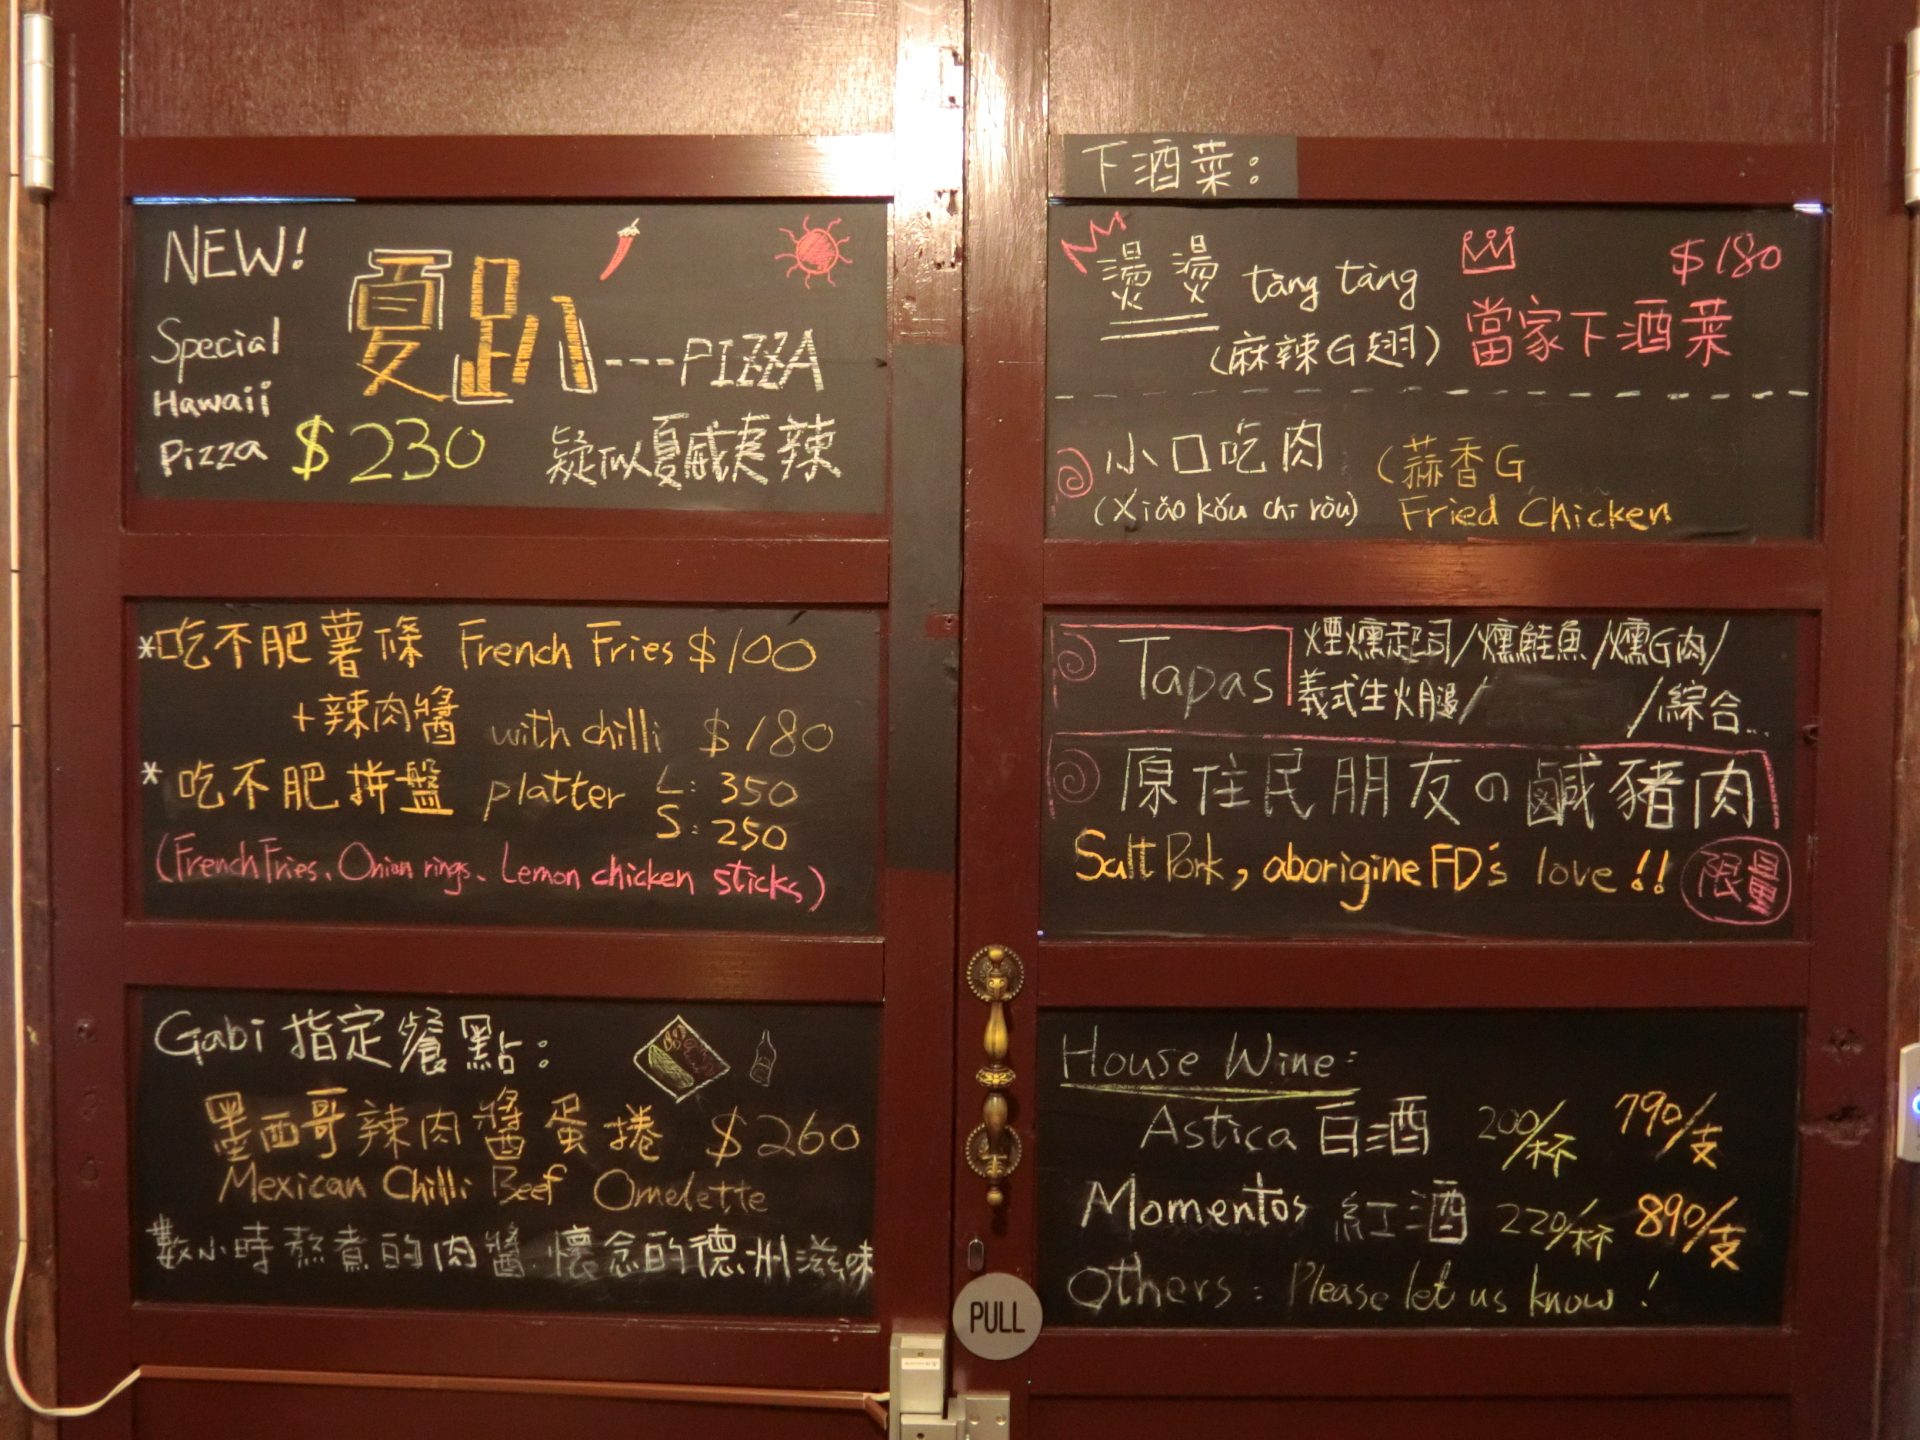 NEW!
Special
Hawaii
Pizza
夏趴---PIZZA
$230
疑似夏威夷辣
*吃不肥薯條 French Fries $100
+辣肉醬 with chilli $180
*吃不肥拼盤 platter L: 350
S: 250
(French Fries、Onion rings、Lemon chicken sticks)
Gabi 指定餐點:
墨西哥辣肉醬蛋捲 $260
Mexican Chilli Beef Omelette
數小時熬煮的肉醬.懷念的德州滋味
PULL
下酒菜:
燙燙 tàng tàng
(麻辣G翅)
$180
當家下酒菜
小口吃肉 (蒜香G
(Xiǎo kǒu chī ròu) Fried Chicken
Tapas
煙燻起司/燻鮭魚/燻G肉/
義式生火腿/ /綜合...
原住民朋友の鹹豬肉
Salt Pork, aborigine FD's love!!
限量
House Wine:
Astica 白酒 200/杯 790/支
Momentos 紅酒 220/杯 890/支
Others: Please let us know!